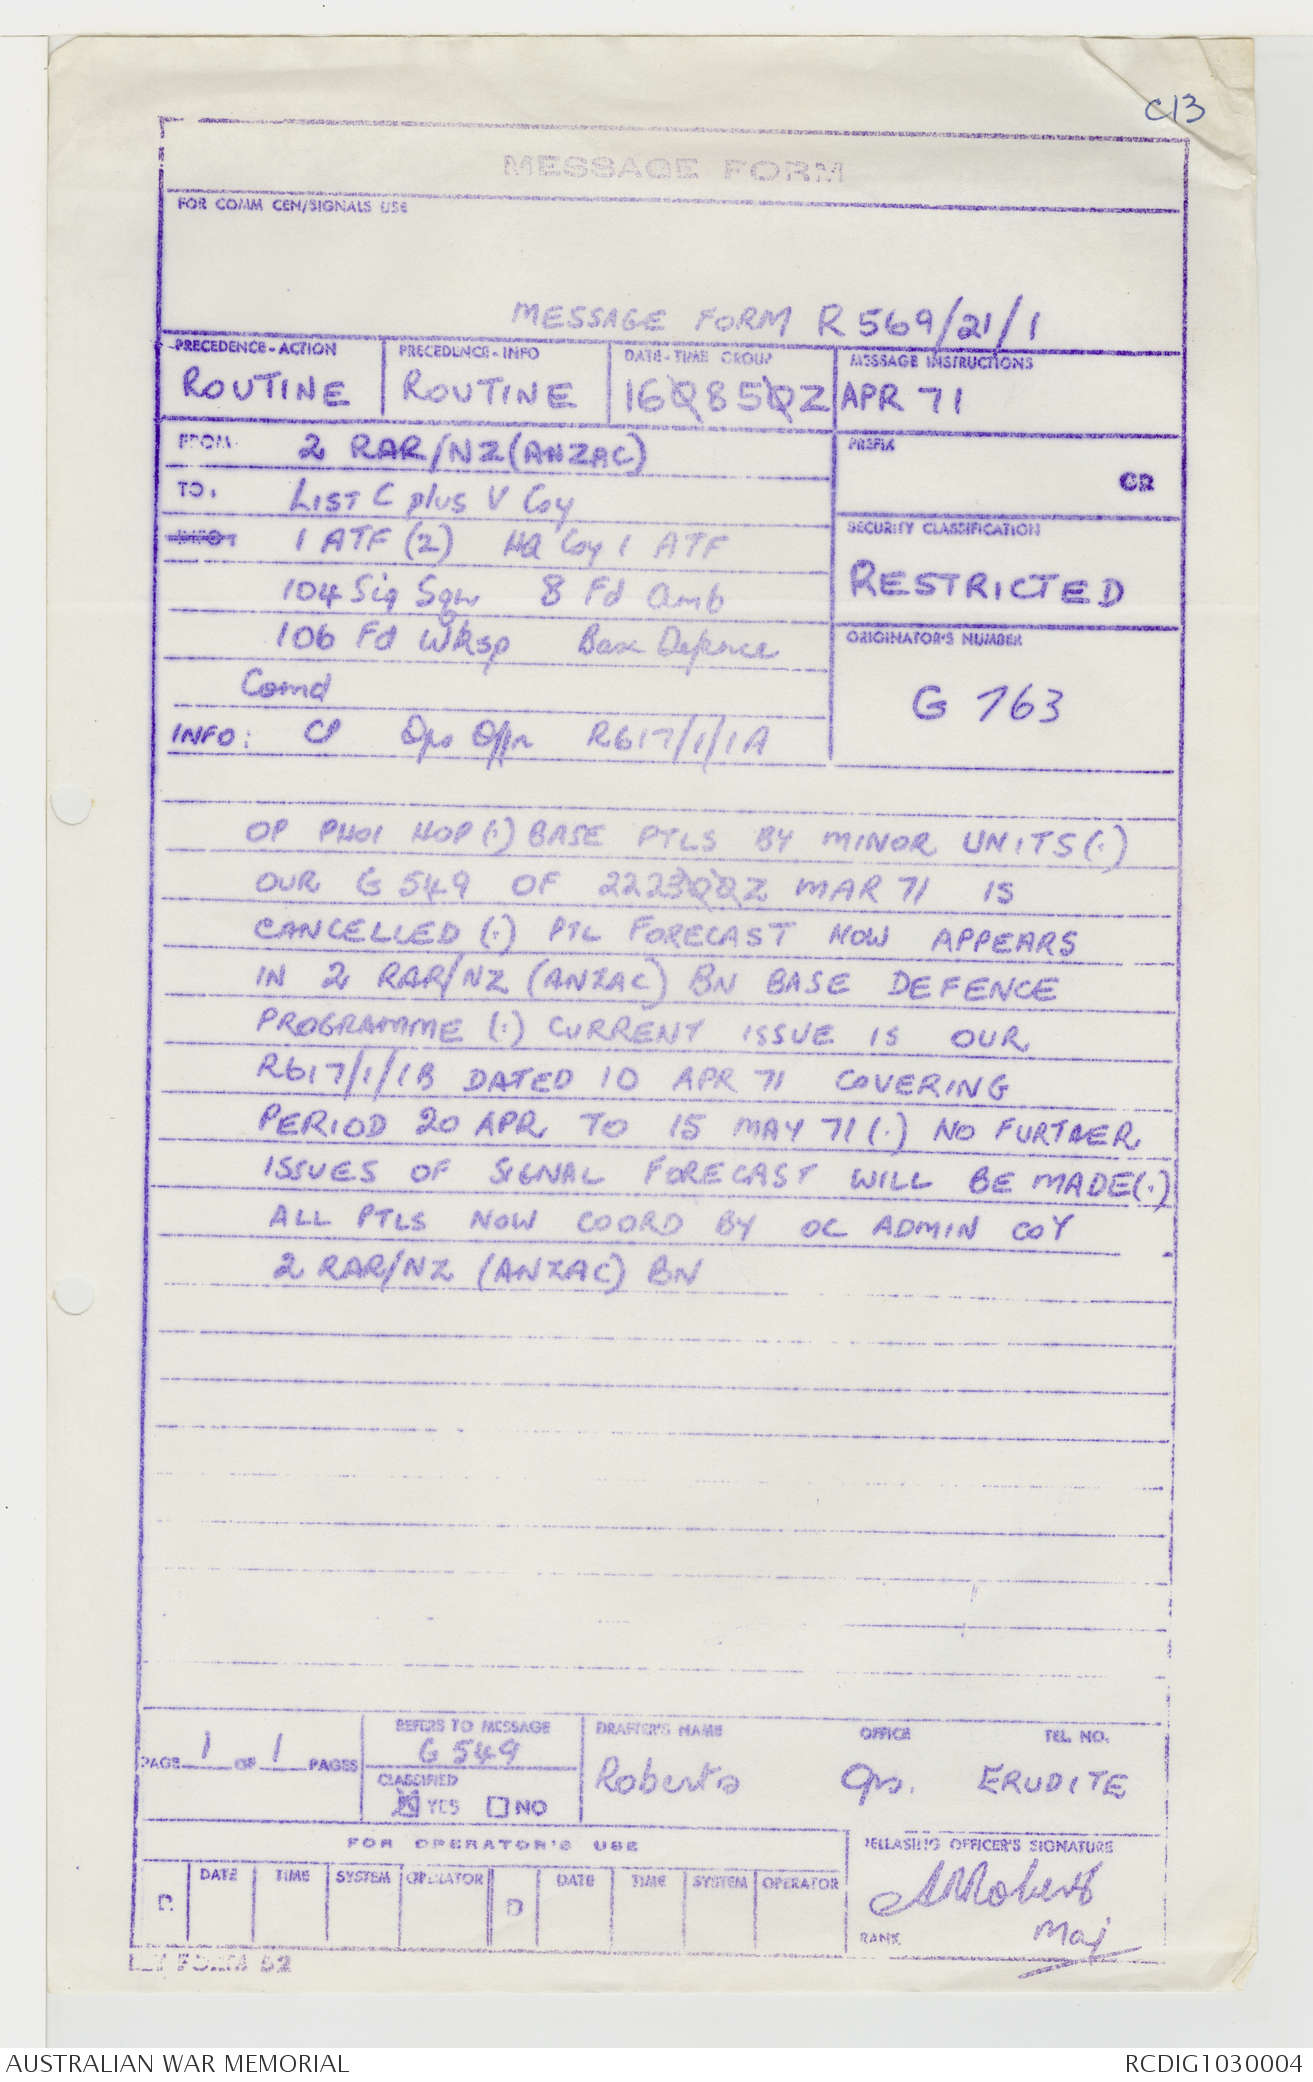 C13
MESSAGE FORM
FOR COMM CEN/SIGNALS USE
MESSAGE FORM R569/21/1
PRECEDENCE-ACTION
ROUTINE
PRECEDENCE-INFO
ROUTINE
DATE-TIME GROUP
160850Z
MESSAGE INSTRUCTIONS
APR 71
FROM 2 RAR/NZ(ANZAC)
PREFIX
GR
TO: LIST C plus V Coy
INFO: 1 ATF (2) HQ Coy 1 ATF
SECURITY CLASSIFICATION
RESTRICTED
104 Sig Sqn 8 Fd Amb
106 Fd Wksp Base Defence
Comd
ORIGINATOR'S NUMBER
G 763
INFO: CP Ops Offr R617/1/1A
OP PHOI HOP(.) BASE PTLS BY MINOR UNITS(.)
OUR G549 OF 222300Z MAR 71 IS
CANCELLED (.) PTL FORECAST NOW APPEARS
IN 2 RAR/NZ (ANZAC) BN BASE DEFENCE
PROGRAMME (.) CURRENT ISSUE IS OUR
R617/1/1B DATED 10 APR 71 COVERING
PERIOD 20 APR TO 15 MAY 71(.) NO FURTHER
ISSUES OF SIGNAL FORECAST WILL BE MADE(.)
ALL PTLS NOW COORD BY OC ADMIN COY
2 RAR/NZ (ANZAC) BN
PAGE 1 OF 1 PAGES
REFERS TO MESSAGE
G 549
CLASSIFIED
YES NO
DRAFTER'S NAME OFFICE TEL. NO.
Roberts Ops. ERUDITE
FOR OPERATOR'S USE
R DATE TIME SYSTEM OPERATOR D DATE TIME SYSTEM OPERATOR
RELEASING OFFICER'S SIGNATURE
RANK Maj
FORM 62
AUSTRALIAN WAR MEMORIAL RCDIG1030004